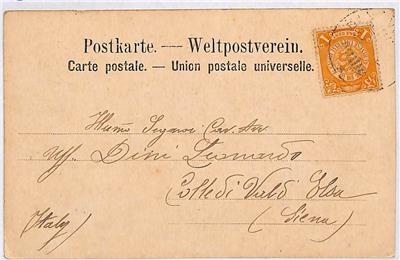 Postkarte. — Weltpostverein.
Carte postale. — Union postale universelle.
1 1
Illmo Signor Cav. Avv
Uff. Dini Leonardo
Colle di Vald'Elsa
(Siena)
(Italy)